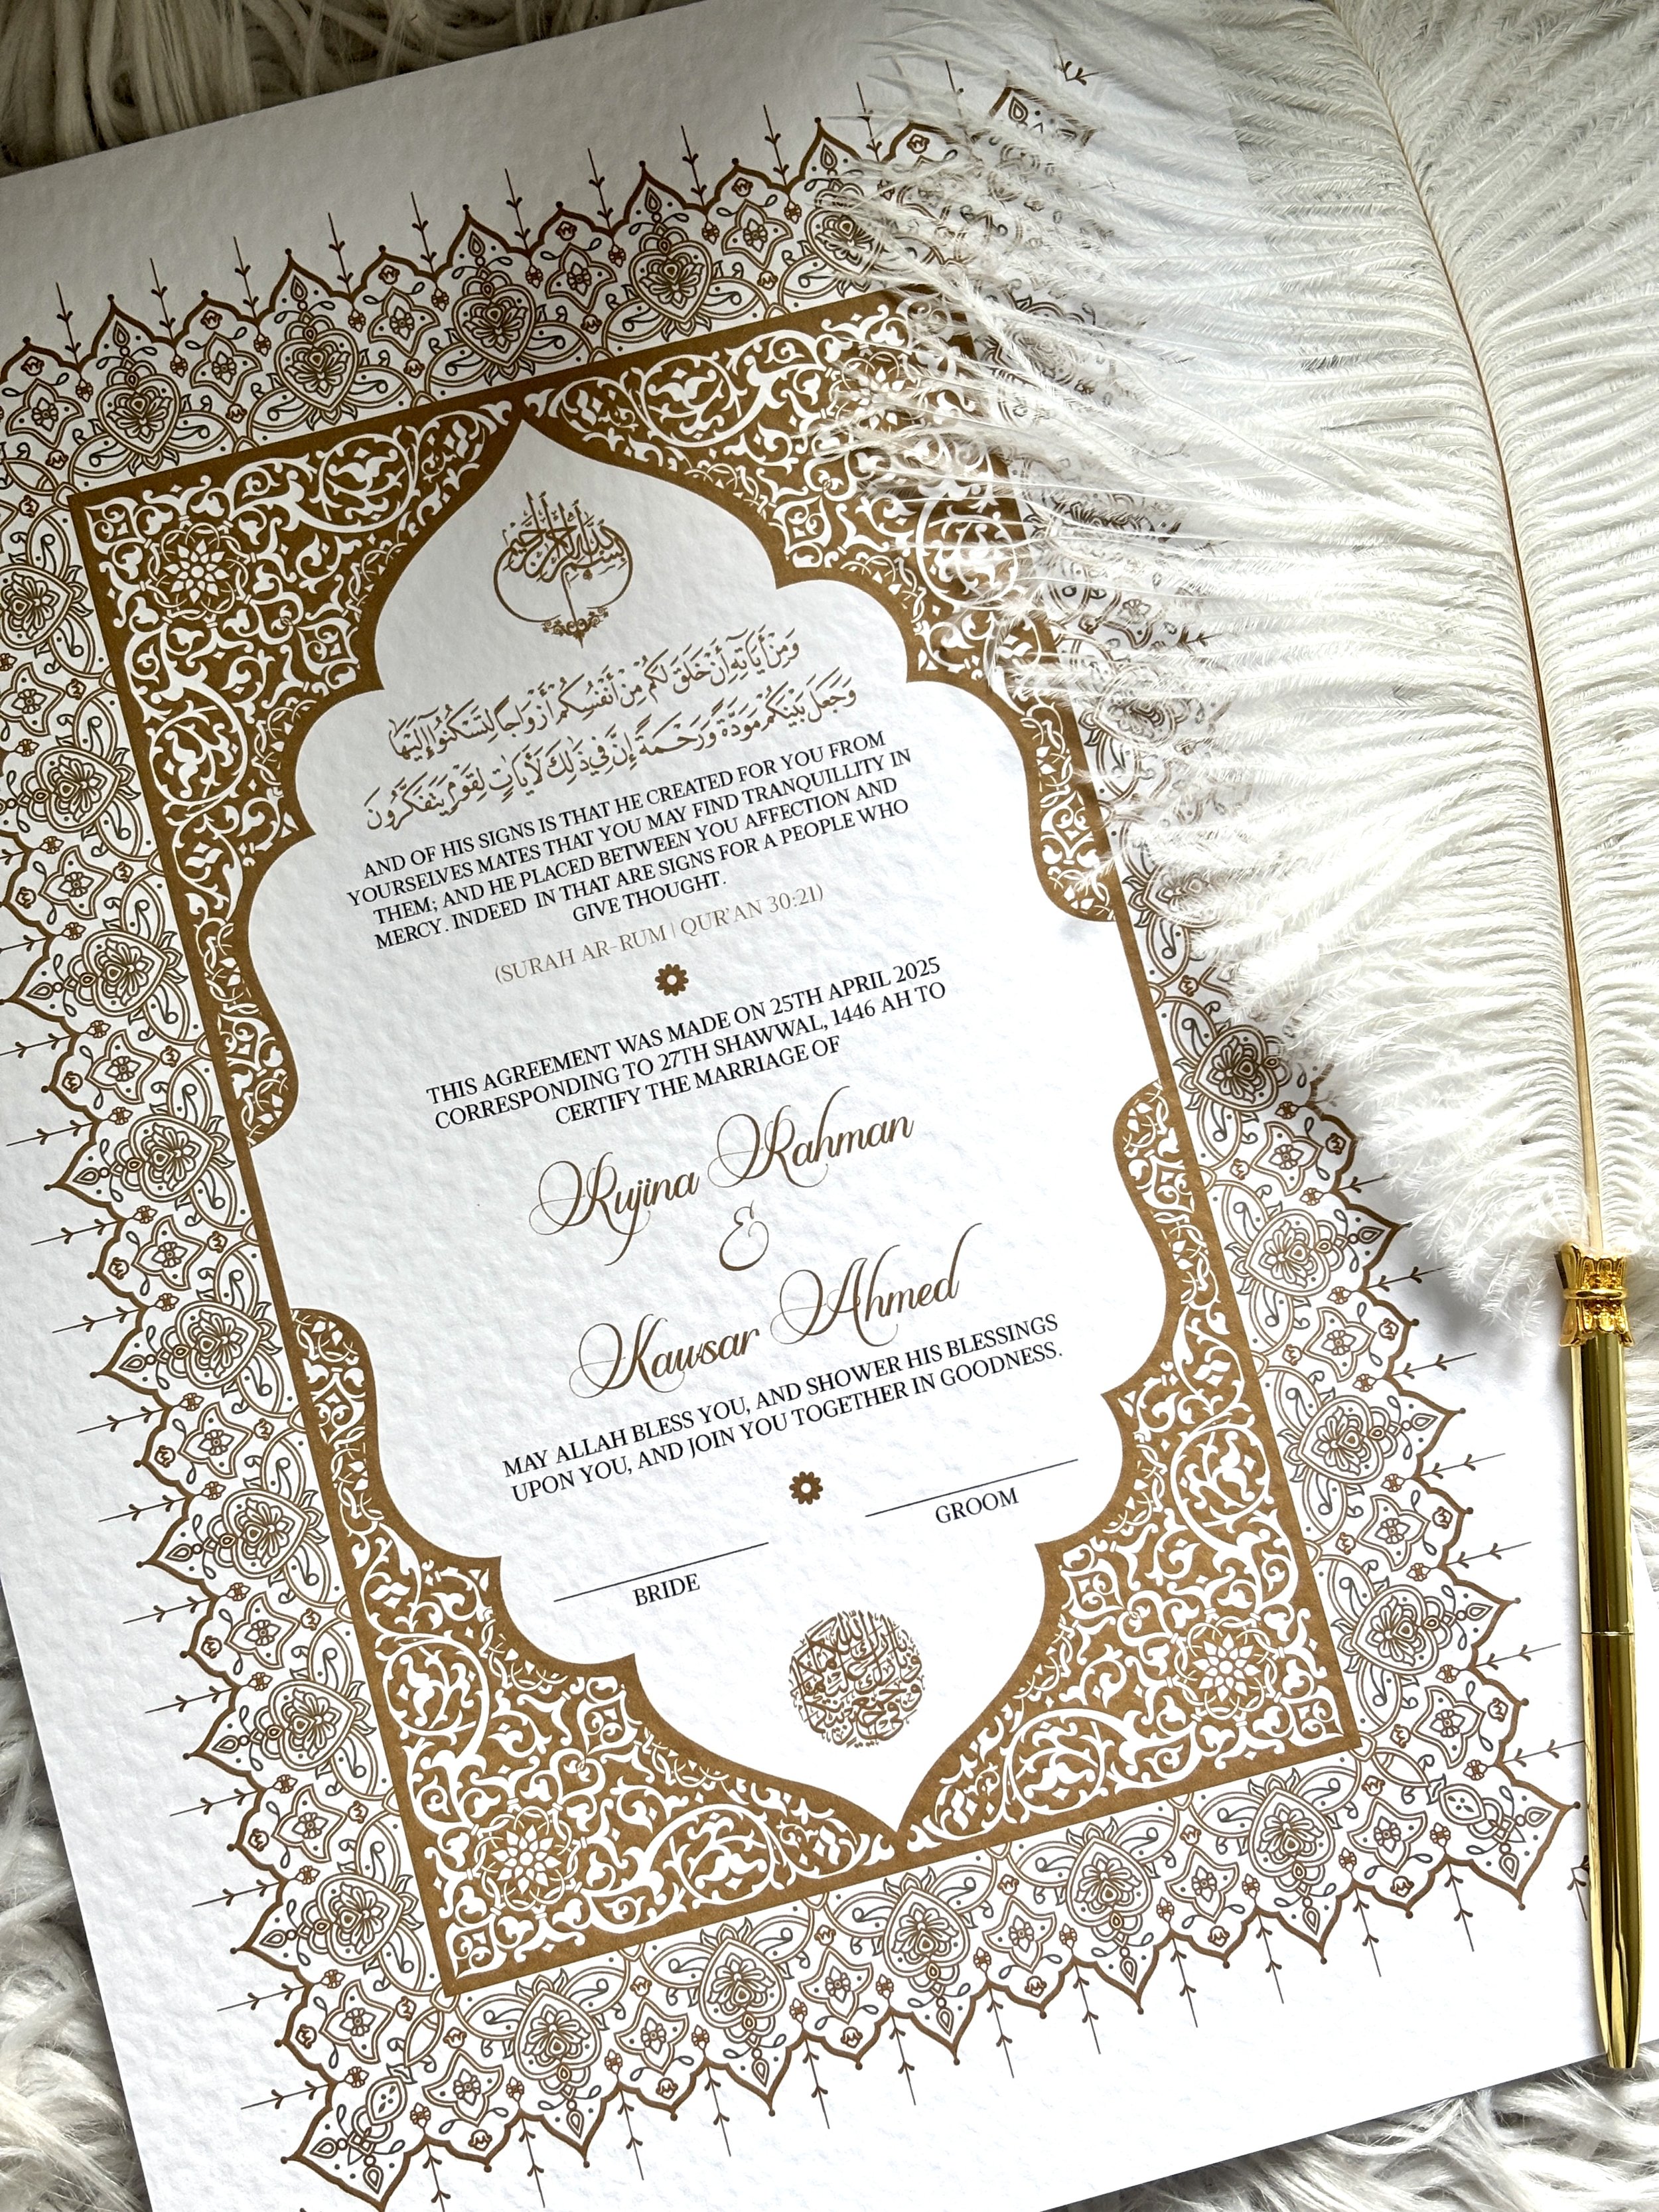 بسم الله الرحمن الرحيم
وَمِنْ آيَاتِهِ أَنْ خَلَقَ لَكُم مِّنْ أَنفُسِكُمْ أَزْوَاجًا لِّتَسْكُنُوا إِلَيْهَا
وَجَعَلَ بَيْنَكُم مَّوَدَّةً وَرَحْمَةً إِنَّ فِي ذَٰلِكَ لَآيَاتٍ لِّقَوْمٍ يَتَفَكَّرُونَ
AND OF HIS SIGNS IS THAT HE CREATED FOR YOU FROM
YOURSELVES MATES THAT YOU MAY FIND TRANQUILLITY IN
THEM; AND HE PLACED BETWEEN YOU AFFECTION AND
MERCY. INDEED IN THAT ARE SIGNS FOR A PEOPLE WHO
GIVE THOUGHT.
(SURAH AR-RUM | QUR'AN 30:21)
THIS AGREEMENT WAS MADE ON 25TH APRIL 2025
CORRESPONDING TO 27TH SHAWWAL, 1446 AH TO
CERTIFY THE MARRIAGE OF
Rujina Rahman
&
Kawsar Ahmed
MAY ALLAH BLESS YOU, AND SHOWER HIS BLESSINGS
UPON YOU, AND JOIN YOU TOGETHER IN GOODNESS.
BRIDE
GROOM